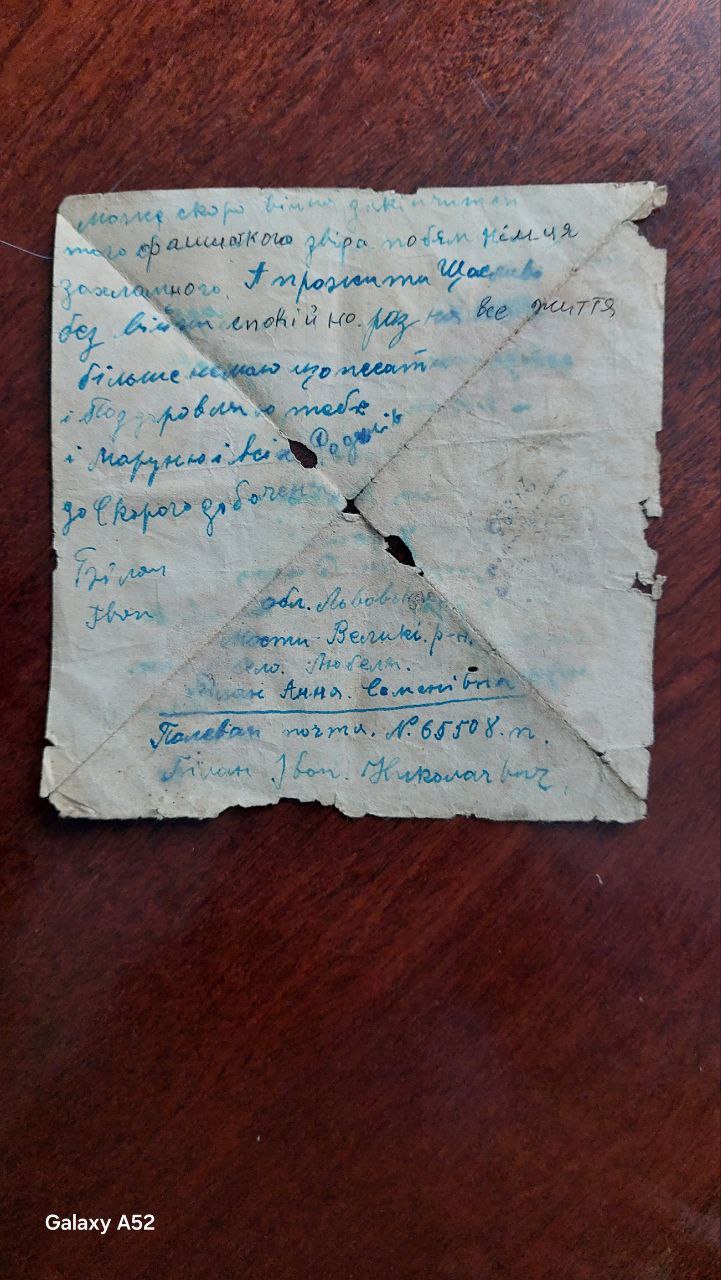 може скоро війна закінчится
того фашиткого звіра побєм німця
захланного. А прожити Щасливо
без війни спокійно. раз на все життя
більше немаю що песат
і Поздоровляю тебе
і Маруню і всіх Радичів
до Скорого добаченя
Білан
Івон
обл. Львовська
Мости Великі. р-н.
село. Любеля.
Білан Анна Семенівна
Полеван почта. №65508. п.
Білан Івон. Николаевич,
Galaxy A52